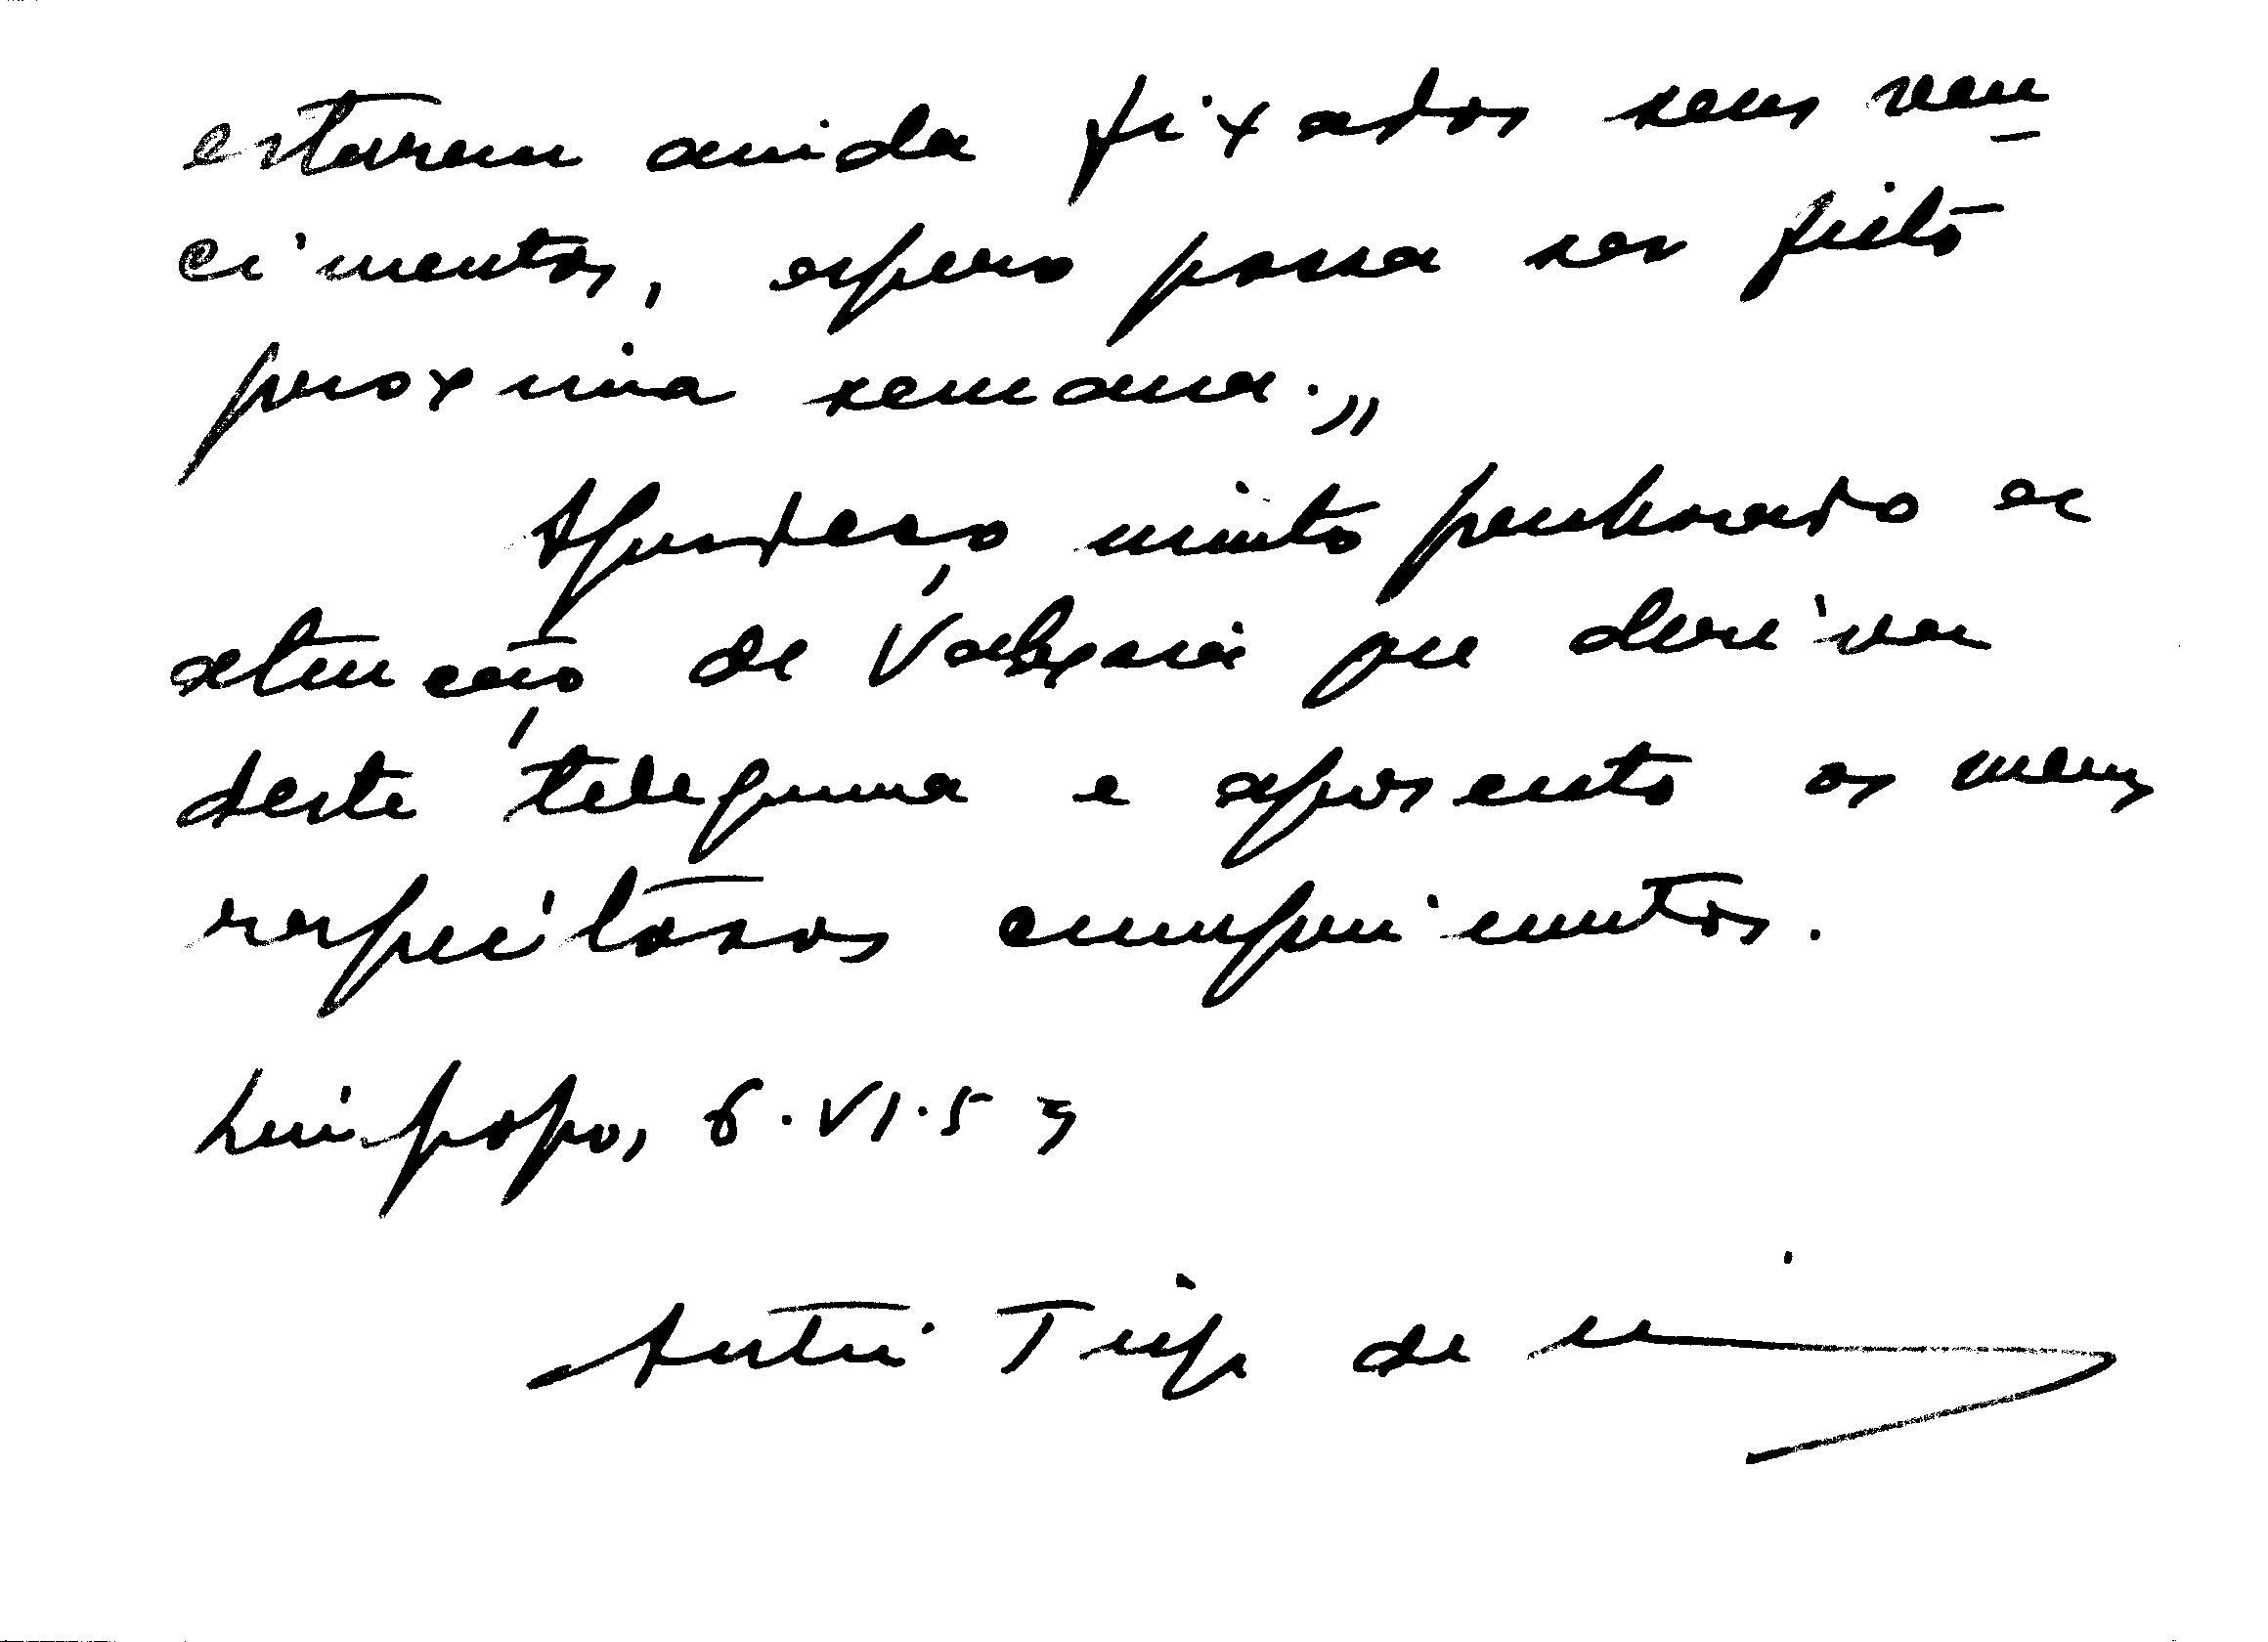 estarem ainda fixados seus ven-
cimentos, espero possa ser feito
proxima semana.„
Agradeço muito penhorado a
atenção de Va Exa que deriva
deste telegrama e apresento os meus
respeitosos cumprimentos.
Limpopo, 6.VI.59
de